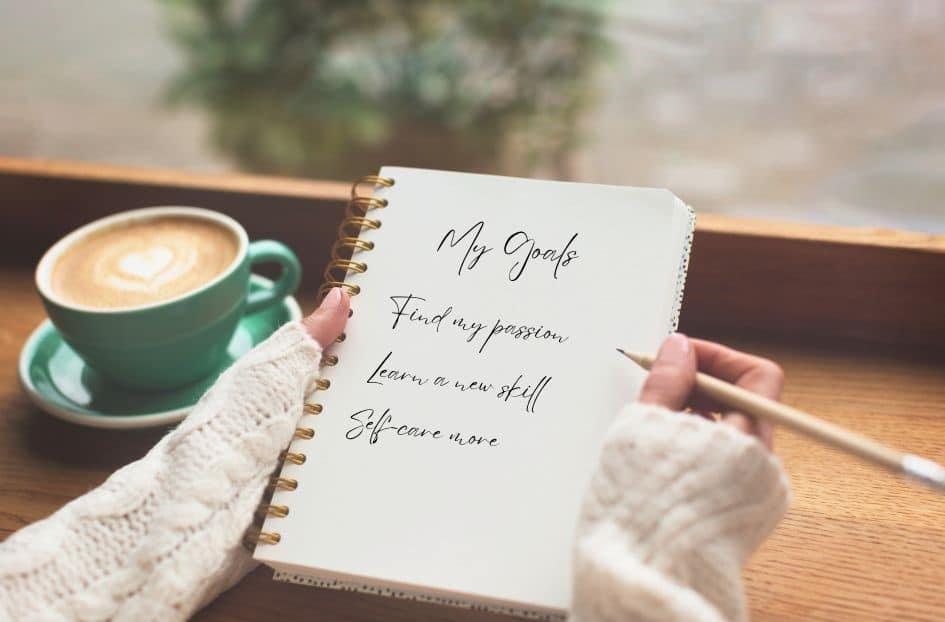 My Goals
Find my passion
Learn a new skill
Self-care more